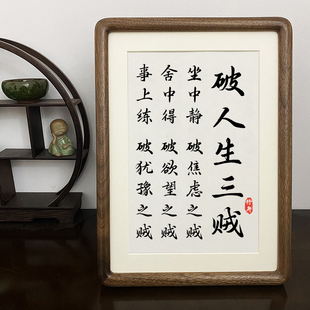 破人生三贼
坐中静 破焦虑之贼
舍中得 破欲望之贼
事上练 破犹豫之贼